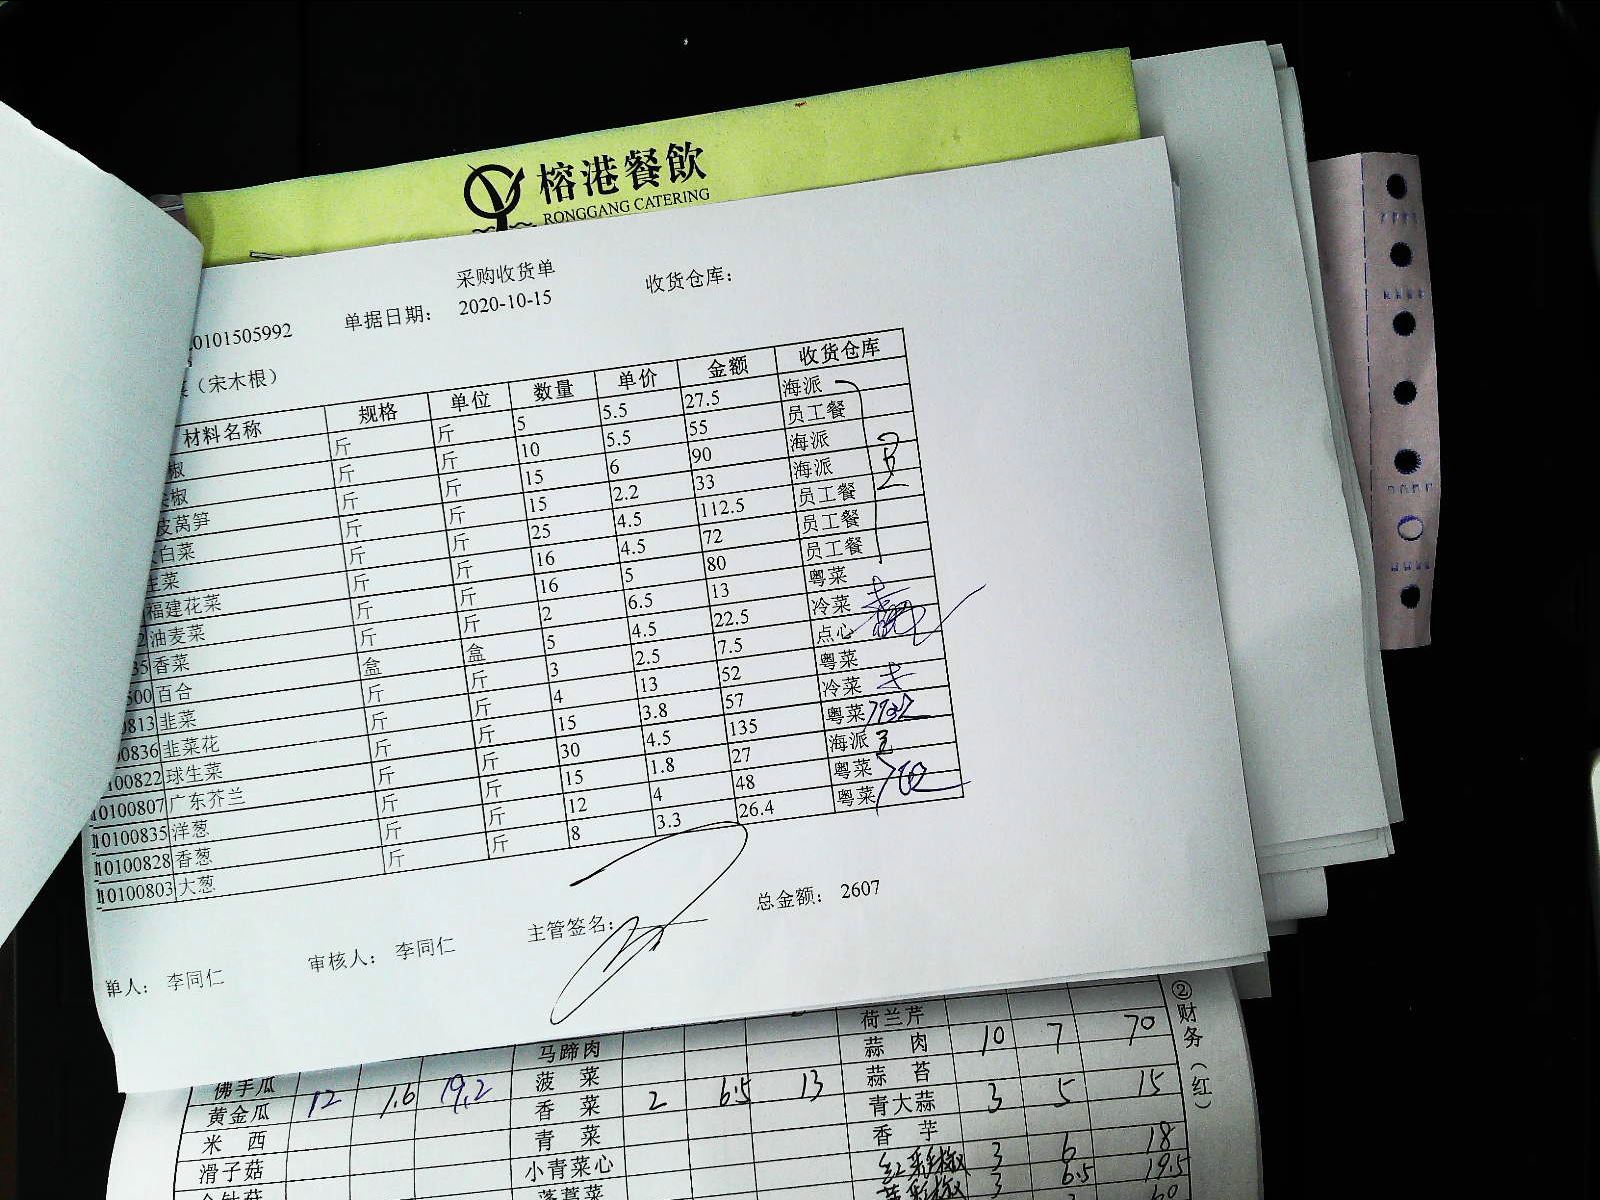 榕港餐飲
RONGGANG CATERING
采购收货单
0101505992 单据日期: 2020-10-15 收货仓库:
(宋木根)
材料名称 规格 单位 数量 单价 金额 收货仓库
椒 斤 斤 5 5.5 27.5 海派
椒 斤 斤 10 5.5 55 员工餐
皮莴笋 斤 斤 15 6 90 海派
白菜 斤 斤 15 2.2 33 海派
生菜 斤 斤 25 4.5 112.5 员工餐
福建花菜 斤 斤 16 4.5 72 员工餐
2 油麦菜 斤 斤 16 5 80 员工餐
35 香菜 斤 斤 2 6.5 13 粤菜
500 百合 盒 盒 5 4.5 22.5 冷菜
0813 韭菜 斤 斤 3 2.5 7.5 点心
00836 韭菜花 斤 斤 4 13 52 粤菜
100822 球生菜 斤 斤 15 3.8 57 冷菜
10100807 广东芥兰 斤 斤 30 4.5 135 粤菜
10100835 洋葱 斤 斤 15 1.8 27 海派
10100828 香葱 斤 斤 12 4 48 粤菜
10100803 大葱 斤 斤 8 3.3 26.4 粤菜
单人: 李同仁 审核人: 李同仁 主管签名: 总金额: 2607
荷兰芹
马蹄肉 蒜肉 10 7 70
佛手瓜 菠菜 蒜苔
黄金瓜 12 1.6 19.2 香菜 2 6.5 13 青大蒜 3 5 15
米西 青菜 香芋
滑子菇 小青菜心 红彩椒 3 6 18
金针菇 蓬蒿菜 黄彩椒 3 6.5 19.5
②财务(红)